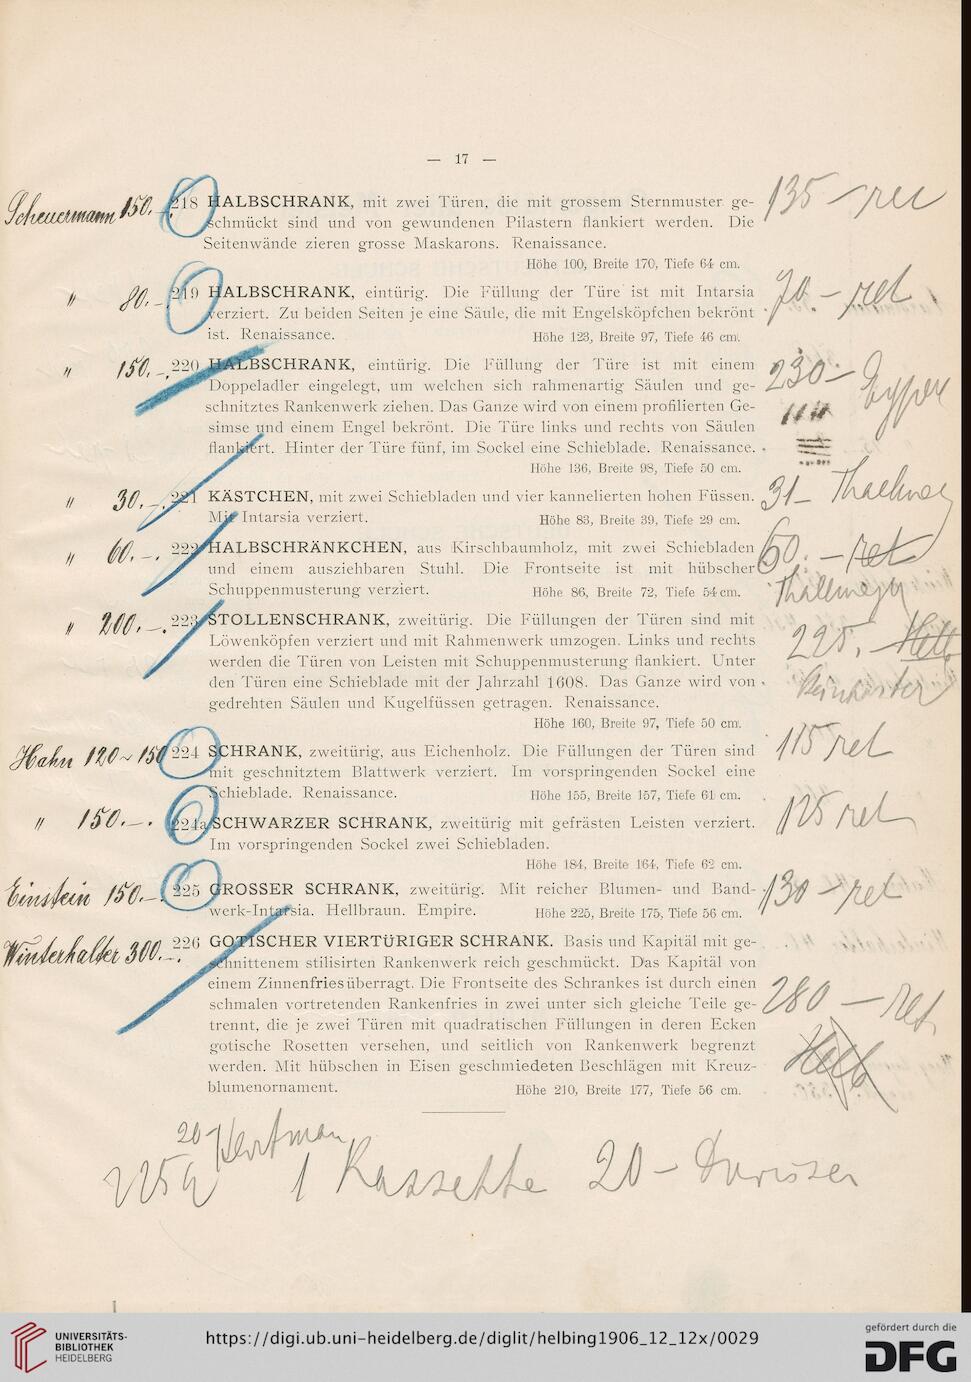 — 17 —
Scheuermann 150.– 218 HALBSCHRANK, mit zwei Türen, die mit grossem Sternmuster ge- 135 – ret
schmückt sind und von gewundenen Pilastern flankiert werden. Die
Seitenwände zieren grosse Maskarons. Renaissance.
Höhe 100, Breite 170, Tiefe 64 cm.
" 80.– 219 HALBSCHRANK, eintürig. Die Füllung der Türe ist mit Intarsia 70 – ret
verziert. Zu beiden Seiten je eine Säule, die mit Engelsköpfchen bekrönt
ist. Renaissance. Höhe 123, Breite 97, Tiefe 46 cm.
" 150.– 220 HALBSCHRANK, eintürig. Die Füllung der Türe ist mit einem 230 –
Doppeladler eingelegt, um welchen sich rahmenartig Säulen und ge-
schnitztes Rankenwerk ziehen. Das Ganze wird von einem profilierten Ge-
simse und einem Engel bekrönt. Die Türe links und rechts von Säulen
flankiert. Hinter der Türe fünf, im Sockel eine Schieblade. Renaissance.
Höhe 136, Breite 98, Tiefe 50 cm.
" 30.–. 221 KÄSTCHEN, mit zwei Schiebladen und vier kannelierten hohen Füssen. 31 –
Mit Intarsia verziert. Höhe 83, Breite 39, Tiefe 29 cm.
" 60.–. 222 HALBSCHRÄNKCHEN, aus Kirschbaumholz, mit zwei Schiebladen 60. – ret
und einem ausziehbaren Stuhl. Die Frontseite ist mit hübscher
Schuppenmusterung verziert. Höhe 86, Breite 72, Tiefe 54 cm.
" 200.–. 223 STOLLENSCHRANK, zweitürig. Die Füllungen der Türen sind mit
Löwenköpfen verziert und mit Rahmenwerk umzogen. Links und rechts 225. –
werden die Türen von Leisten mit Schuppenmusterung flankiert. Unter
den Türen eine Schieblade mit der Jahrzahl 1608. Das Ganze wird von
gedrehten Säulen und Kugelfüssen getragen. Renaissance.
Höhe 160, Breite 97, Tiefe 50 cm.
Hahn 120 ~ 150 224 SCHRANK, zweitürig, aus Eichenholz. Die Füllungen der Türen sind 115 ret
mit geschnitztem Blattwerk verziert. Im vorspringenden Sockel eine
Schieblade. Renaissance. Höhe 155, Breite 157, Tiefe 61 cm.
" 150.–. 224a SCHWARZER SCHRANK, zweitürig mit gefrästen Leisten verziert. 125 ret
Im vorspringenden Sockel zwei Schiebladen.
Höhe 184, Breite 164, Tiefe 62 cm.
Einstein 150.–. 225 GROSSER SCHRANK, zweitürig. Mit reicher Blumen- und Band- 130 – ret
werk-Intarsia. Hellbraun. Empire. Höhe 225, Breite 175, Tiefe 56 cm.
Winterhalter 300.–. 226 GOTISCHER VIERTÜRIGER SCHRANK. Basis und Kapitäl mit ge-
schnittenem stilisirten Rankenwerk reich geschmückt. Das Kapitäl von
einem Zinnenfries überragt. Die Frontseite des Schrankes ist durch einen 280 – ret
schmalen vortretenden Rankenfries in zwei unter sich gleiche Teile ge-
trennt, die je zwei Türen mit quadratischen Füllungen in deren Ecken
gotische Rosetten versehen, und seitlich von Rankenwerk begrenzt
werden. Mit hübschen in Eisen geschmiedeten Beschlägen mit Kreuz-
blumenornament. Höhe 210, Breite 177, Tiefe 56 cm.
20 –
225a 1 Kassette 20 –
UNIVERSITÄTS-
BIBLIOTHEK
HEIDELBERG
https://digi.ub.uni-heidelberg.de/diglit/helbing1906_12_12x/0029
gefördert durch die
DFG